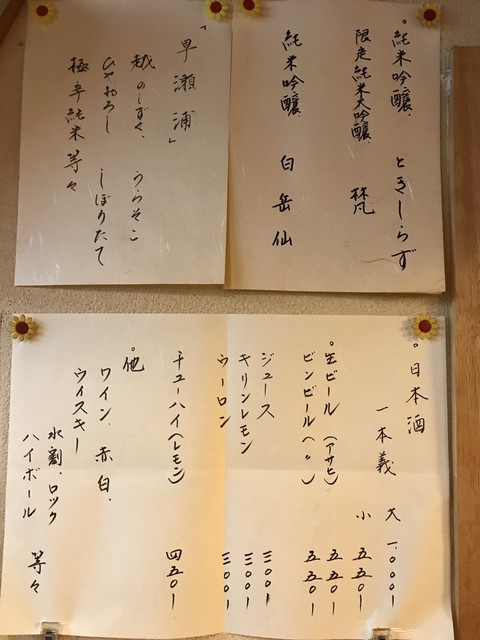 。純米吟醸、ときしらず
限定純米大吟醸、梵
純米吟醸 白岳仙
「早瀬浦」
越のしずく、うらそこ
ひやおろし しぼりたて
極辛純米 等々
。日本酒
一本義 大 一、〇〇〇ー
小 五五〇ー
。生ビール(アサヒ) 五五〇ー
ビンビール(〃) 五五〇ー
ジュース 三〇〇ー
キリンレモン 三〇〇ー
ウーロン 三〇〇ー
チューハイ(レモン) 四五〇ー
。他
ワイン、赤白、
ウイスキー
水割、ロック
ハイボール 等々